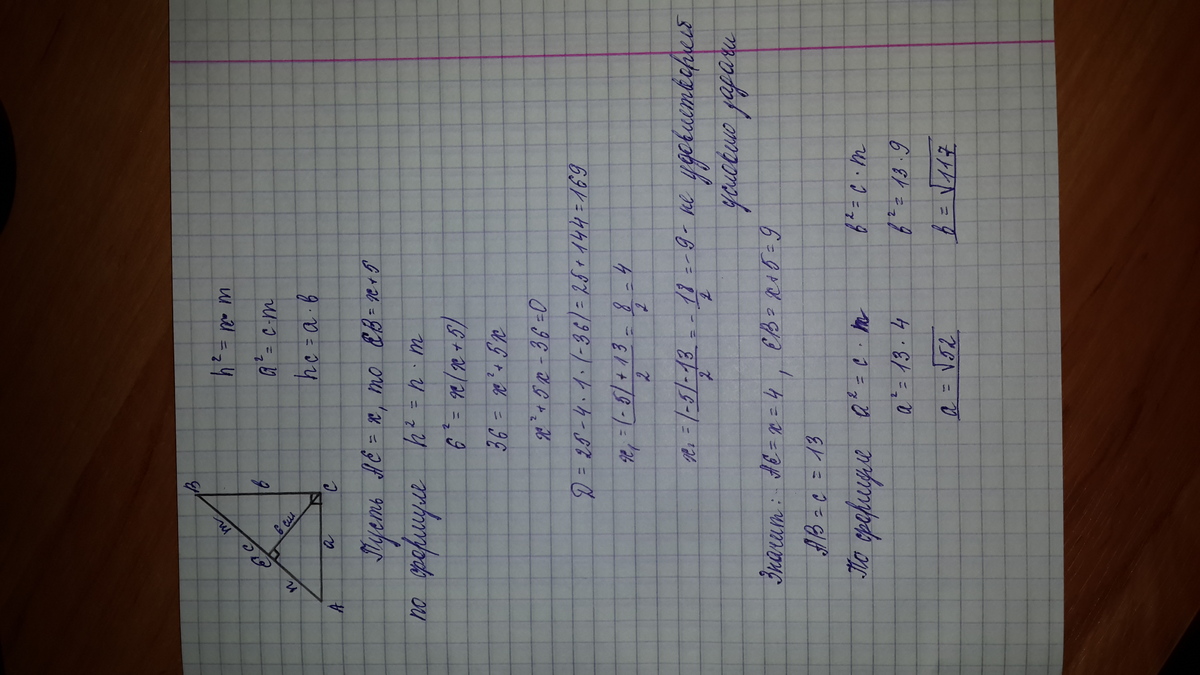 B
m
E
c
n
6 см
b
A
a
C
h² = n · m
a² = c · m
hc = a · b
Пусть AE = x, то EB = x + 5
по формуле h² = n · m
6² = x(x + 5)
36 = x² + 5x
x² + 5x - 36 = 0
D = 25 - 4 · 1 · (-36) = 25 + 144 = 169
x₁ = (-5) + 13 / 2 = 8 / 2 = 4
x₂ = (-5) - 13 / 2 = - 18 / 2 = -9 - не удовлетворяет
условию задачи
Значит: AE = x = 4, EB = x + 5 = 9
AB = c = 13
По формуле a² = c · n b² = c · m
a² = 13 · 4 b² = 13 · 9
a = √52 b = √117